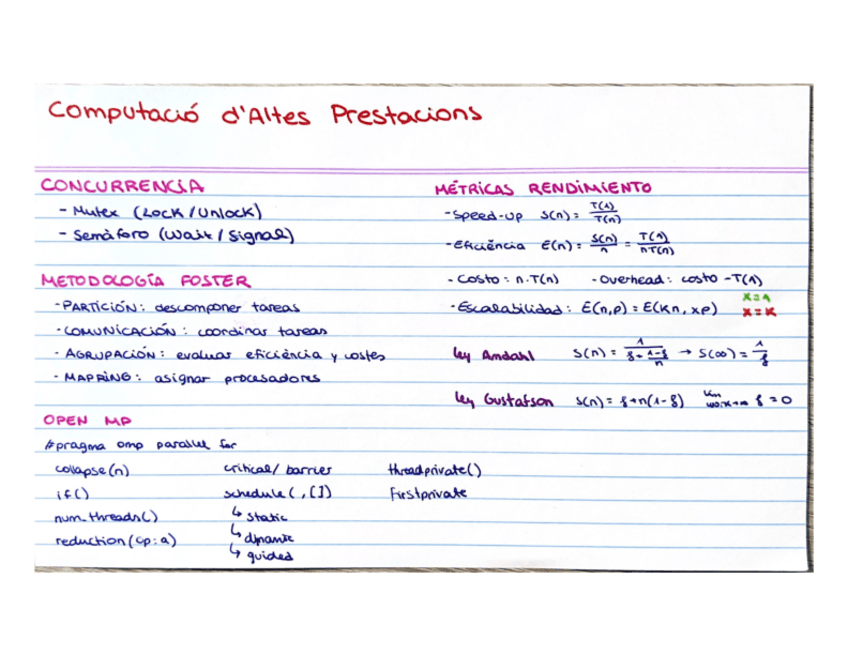 Computació d'Altes Prestacions
CONCURRENCIA
- Mutex (Lock/Unlock)
- Semàforo (Wait/Signal)
METODOLOGÍA FOSTER
- PARTICIÓN: descomponer tareas
- COMUNICACIÓN: coordinar tareas
- AGRUPACIÓN: evaluar eficiència y costes
- MAPPING: asignar procesadores
OPEN MP
#pragma omp parallel for
collapse(n) critical/barrier threadprivate()
if() schedule(,[]) Firstprivate
num_threads() ↳ static
reduction(op:a) ↳ dynamic
↳ guided
MÉTRICAS RENDIMIENTO
- Speed-up S(n) = T(1)/T(n)
- Eficiència E(n) = S(n)/n = T(1)/nT(n)
- Costo = n·T(n) - Overhead: costo - T(1)
- Escalabilidad: E(n,p) = E(Kn, xp) x=1
x=K
Ley Amdahl S(n) = 1/(f + (1-f)/n) → S(∞) = 1/f
Ley Gustafson S(n) = f+n(1-f) f=0